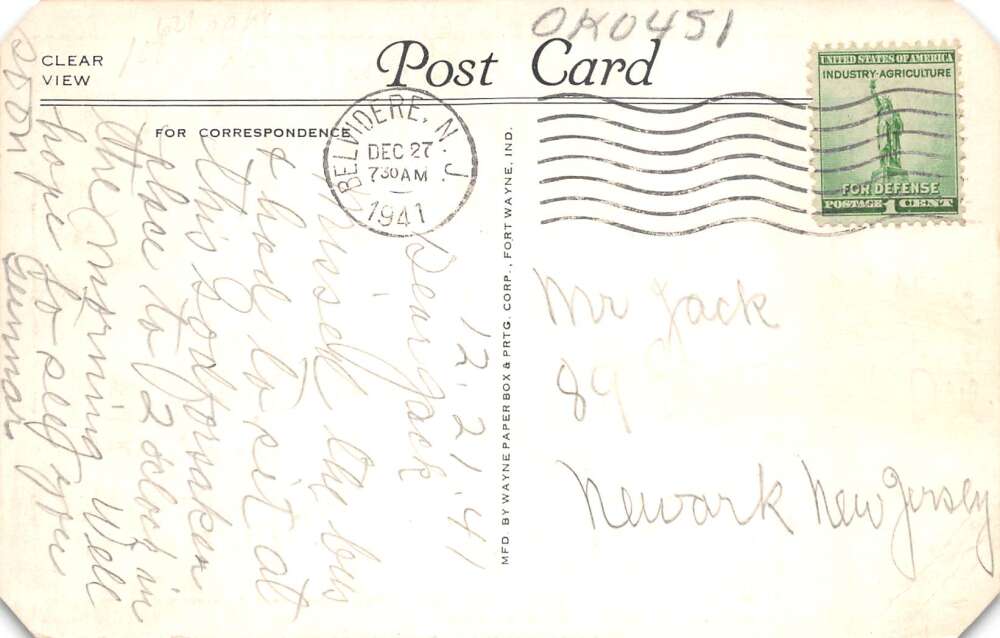 OK0451
CLEAR
VIEW
Post Card
FOR CORRESPONDENCE
BELVIDERE, N. J.
DEC 27
730 AM
1941
UNITED STATES OF AMERICA
INDUSTRY-AGRICULTURE
FOR DEFENSE
POSTAGE 1 CENT
12.21.41
Dear Jack
Missed the bus
& have to sit at
this Godforsaken
place to 2 oclock in
the morning Well
hope to see you
soon
Gunnar
MFD. BY WAYNE PAPER BOX & PRTG. CORP., FORT WAYNE, IND.
Mr Jack
89
Newark New Jersey